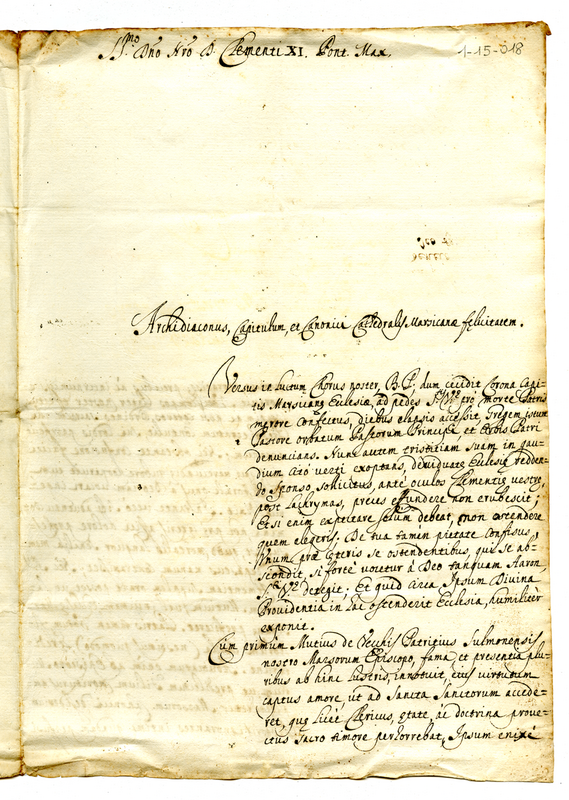 SS.mo Dno Nro D. Clementi XI. Pont. Max.
1-15-318
Archidiaconus, Capitulum, et Canonici Cathedralis Marsicanæ felicitatem.
Versus in luctum Chorus noster, B. P., dum cecidit Corona Capi-
tis Marsicanę Ecclesiæ, ad pedes S. V. pro morte Patris
merore confectus, diebus elapsis accessit, Gregem istum
Pastore orbatum Pastorum Principi, et Orbis Patri
denuncians. Nunc autem tristitiam suam in gau-
dium cito verti exoptans, deviduatę Ecclesię redden-
do Sponso sollicitus, ante oculos Clementis vestrę,
post lachrymas, preces effundere non erubescit;
Et si enim expectare solum debeat, non ostendere
quem elegeris; De tua tamen pietate confisus,
Unum præ cęteris se ostendentibus, qui se ab-
scondit, si forte vocetur à Deo tanquam Aaron,
S. V. detegit; Et quid circa Ipsum Divina
Providentia in hac ostenderit Ecclesia, humilitèr
exponit.
Cum primum Mutius de Vecchis Patritius Sulmonensis
nostro Marsorum Episcopo, fama, et presentia plu-
ribus ab hinc lustris, innotuit, eius virtutum
captus amore, ut ad Sancta Sanctorum accede-
ret, quę licèt Clericus, ętate, ac doctrina prove-
ctus sacro timore perhorrebat, Ipsum enixè